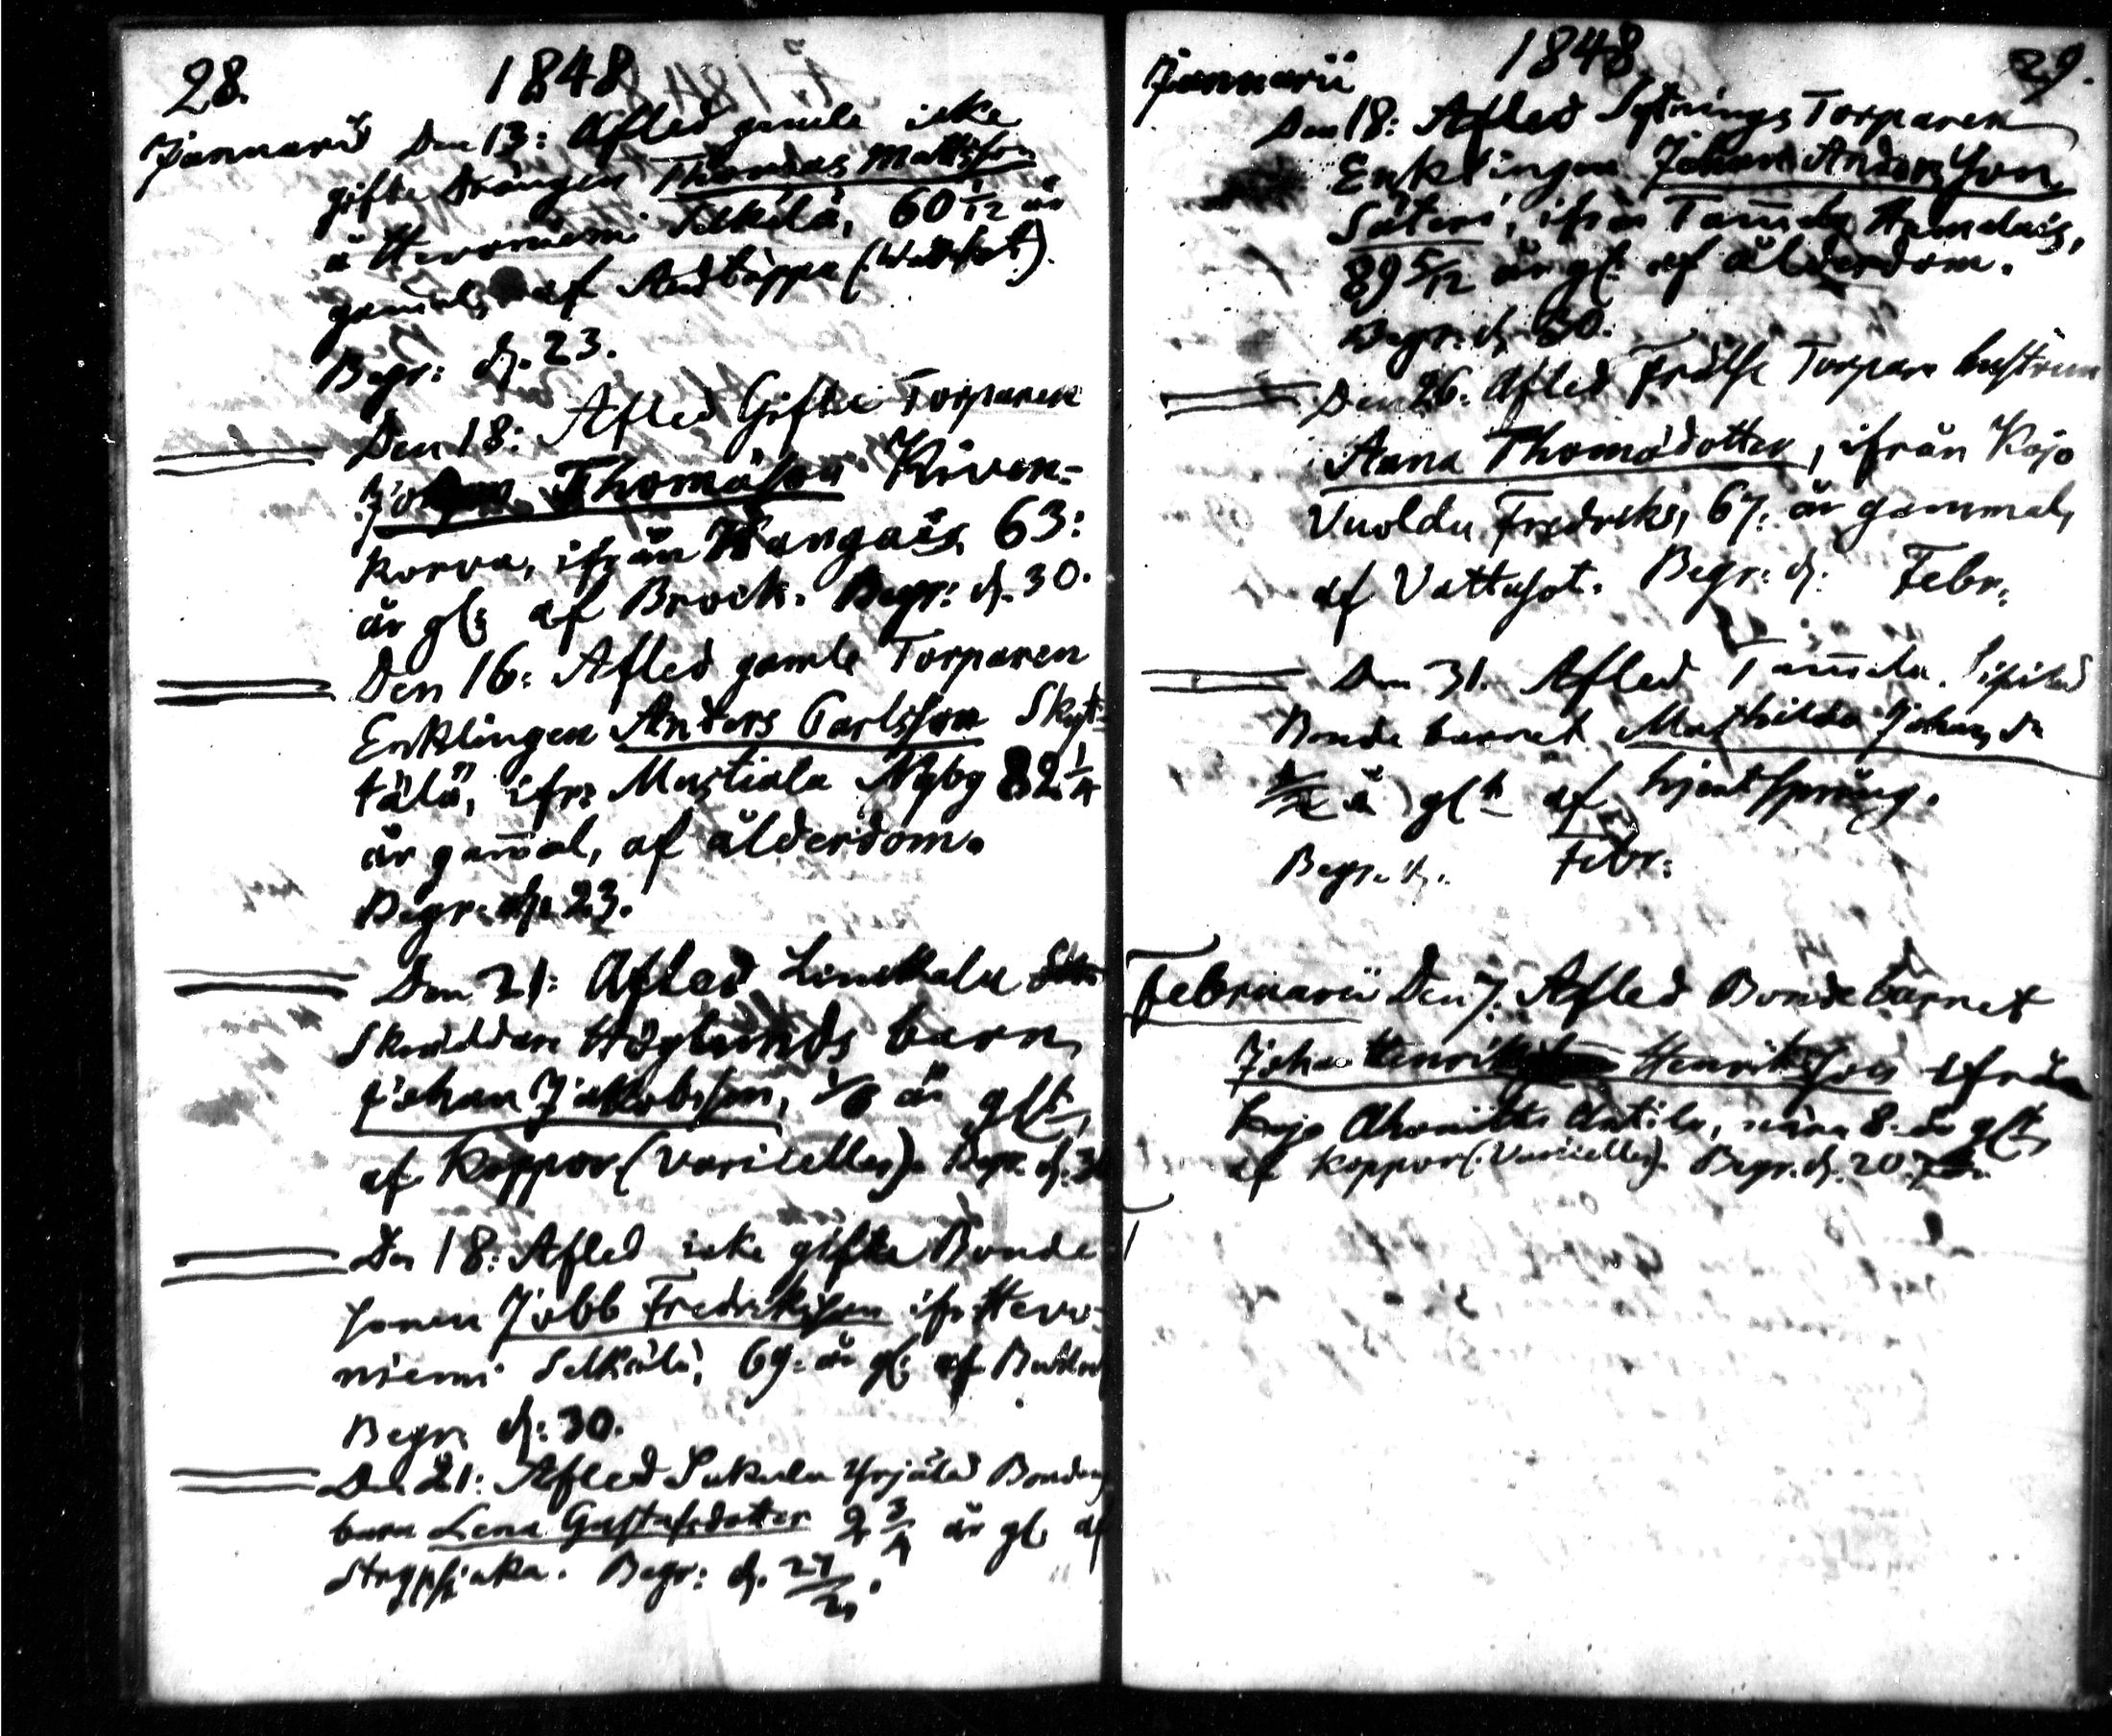 28.
1848
Januarii Den 13: Afled gamle icke
gifte drängen Thomas Mattsson
å Hevoniemi Selkälä, 60 1/12 år
gam̄al, af Andtäppa (Vattusot).
Begr: d. 23.
Den 18: Afled Gifte Torparen
Johan Thomasson Kiven-
korva, ifrån Kangais 63:
år gl: af Brock. Begr: d. 30.
Den 16: Afled gamle Torparen
Enklingen Anders Carlsson Skyt-
tälä, ifr: Mustiala Nyby 82 1/4
år gam̄al, af ålderdom.
Begr. d. 23.
Den 21: Afled Linikkala
Skräddare Höglunds barn,
Johan Jakobsson, 1/6 år glt,
af Koppor (Varicelles). Begr. d. 30
Den 18: Afled icke gifta Bonde
sonen Jobb Fredriksson ifr. Hevo-
niemi Selkälä, 69. år gl: af
Begr. d: 30.
Den 21: Afled Sukula Yrjälä Bonde
barn Lena Gustafsdotter 2 3/4 år gl. af
Strypsjuka. Begr: d. 27
1848
29.
Januarii
Den 18: Afled Sytnings Torparen
Enklingen Johan Andersson
Säteri, ifrån Tam̄ela Hamelais,
89 5/12 år gl: af ålderdom.
Begr: d. 30.
Den 26. Afled Frälse Torpare hustrun
Anna Thomadotter, ifrån Kojo
Vuoldu Fredriks, 67. år gammal,
af Vattusot. Begr: d: Febr:
Den 31. Afled Tam̄ela
Bonde barnet Mathilda Johans dr
år glt af hjertsprång.
Begr. d. Febr:
Februarii Den 7. Afled Bonde barnet
Johan Henrik Henriksson ifrån
Kojo Ahonitti Antila, nära 8. år glt,
af Koppor (Varicelles). Begr. d. 20.